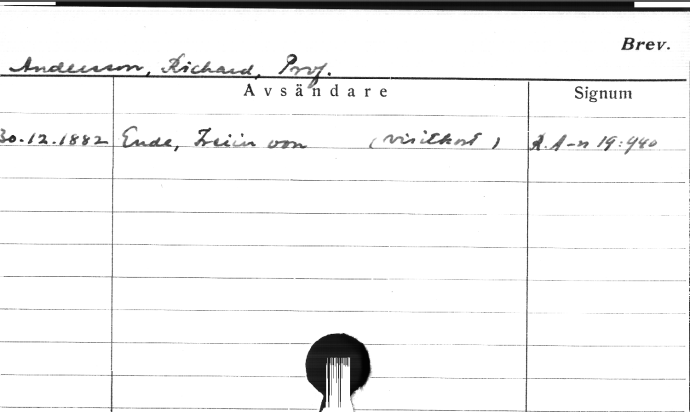 Brev.
Andersson, Richard, Prof.
Avsändare Signum
30.12.1882 Ende, Freiin von (visitkort) R.A-n 19:440